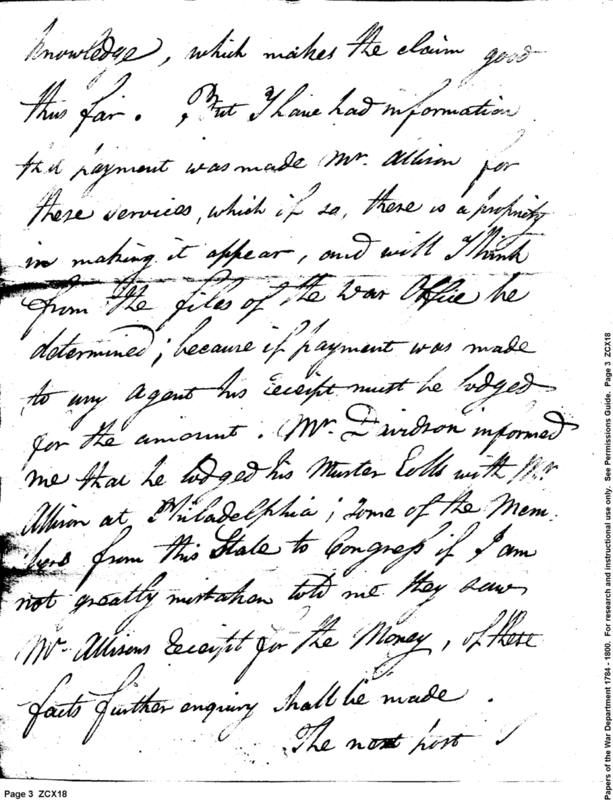 knowledge, which makes the claim good
thus far. But I have had information
that payment was made Mr. Allison for
these services, which if so, there is a propriety
in making it appear, and will I think
from the files of the War Office be
determined; because if payment was made
to any Agent his receipt must be lodged
for the amount. Mr. Davidson informed
me that he lodged his Muster Rolls with Mr.
Allison at Philadelphia; some of the Mem-
bers from this State to Congress if I am
not greatly mistaken told me they saw
Mr. Allisons Receipt for the Money, of these
facts further enquiry shall be made.
The next post I
Page 3 ZCX18
Papers of the War Department 1784 - 1800. For research and instructional use only. See Permissions Guide. Page 3 ZCX18